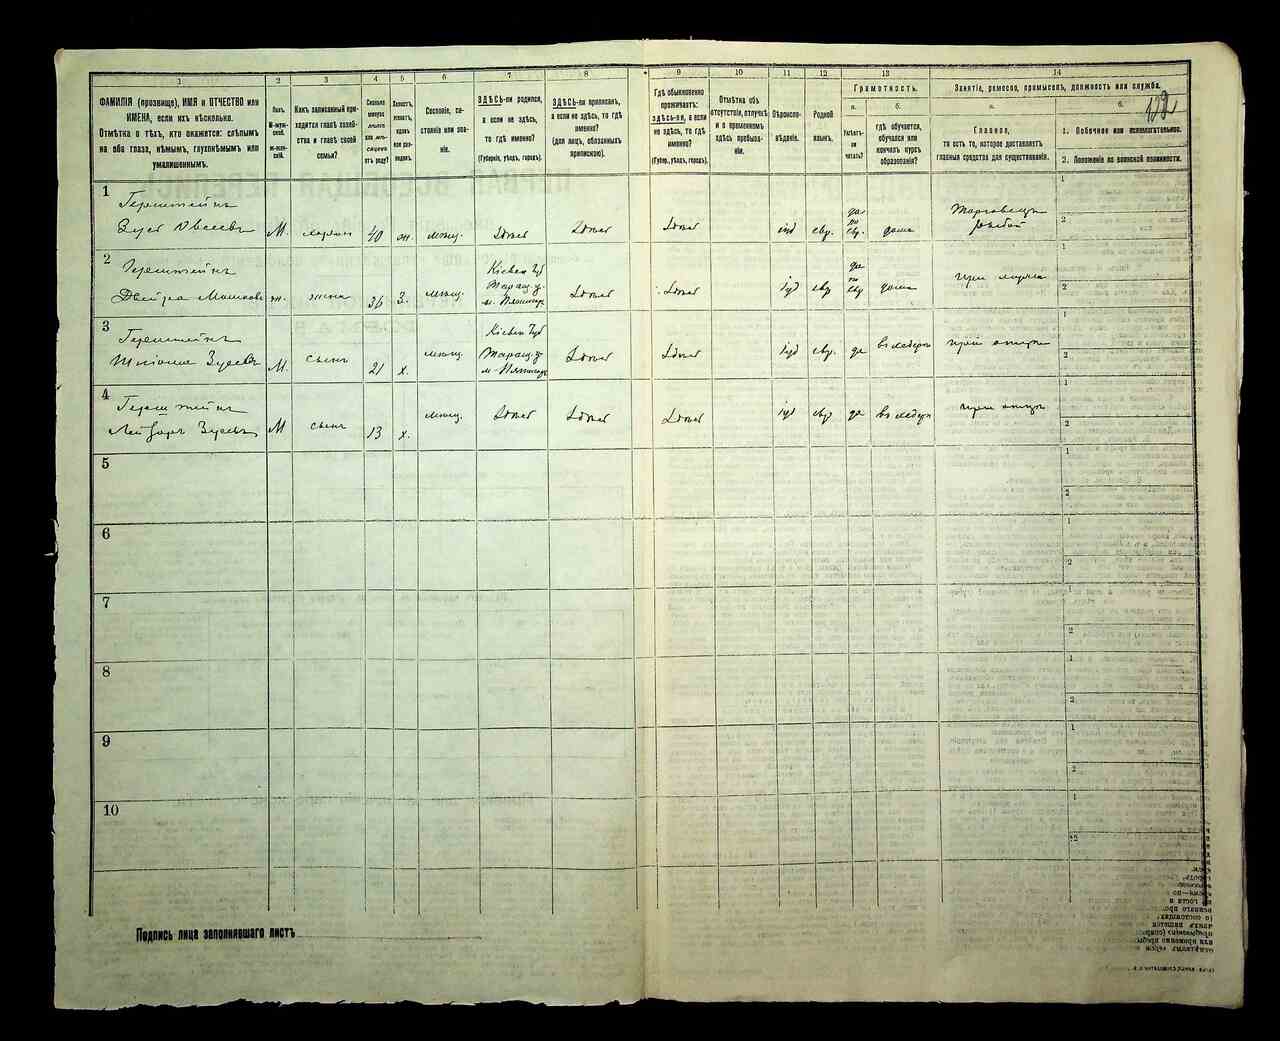 1 2 3 4 5 6 7 8 9 10 11 12 13 14
ФАМИЛІЯ (прозвище), ИМЯ и ОТЧЕСТВО или
ИМЕНА, если ихъ нѣсколько.
Отмѣтка о тѣхъ, кто окажется: слѣпымъ
на оба глаза, нѣмымъ, глухонѣмымъ или
умалишеннымъ.
Полъ.
М-муж-
ской.
ж-жен-
скій.
Какъ записанный при-
ходится главѣ хозяй-
ства и главѣ своей
семьи?
Сколько
минуло
лѣтъ
или мѣ-
сяцевъ
отъ роду?
Холостъ,
женатъ,
вдовъ
или раз-
веденъ.
Сословіе, со-
стояніе или зва-
ніе.
ЗДѢСЬ-ли родился,
а если не здѣсь,
то гдѣ именно?
(Губернія, уѣздъ, городъ).
ЗДѢСЬ-ли приписанъ,
а если не здѣсь, то гдѣ
именно?
(для лицъ, обязанныхъ
припискою).
Гдѣ обыкновенно
проживаетъ:
ЗДѢСЬ-ли, а если
не здѣсь, то гдѣ
именно?
(Губерн., уѣздъ, городъ).
Отмѣтка объ
отсутствіи, отлучкѣ
и о временномъ
здѣсь пребыва-
ніи.
Вѣроиспо-
вѣданіе.
Родной
языкъ.
Грамотность.
а. б.
Умѣетъ-
ли
читать?
гдѣ обучается,
обучался или
кончилъ курсъ
образованія?
Занятіе, ремесло, промыселъ, должность или служба.
а. б.
Главное,
то есть то, которое доставляетъ
главныя средства для существованія.
1. Побочное или вспомогательное.
2. Положеніе по воинской повинности.
1
Герштейнъ
Зусь Овсеевъ М. хозяинъ 40 жн. мѣщ. здѣсь здѣсь здѣсь іуд евр. да по евр. дома Торговецъ рыбой
1
2
2
Герштейнъ
Двейра Мошкова ж. жена 36 З. мѣщ. Кіевск Губ Таращ. у. здѣсь здѣсь іуд евр да по евр дома при мужѣ
1
2
3
Герштейнъ
Зусевъ М. сынъ 21 х. мѣщ. Кіевск Губ Таращ. у здѣсь здѣсь іуд евр. да въ хедерѣ при отцѣ
1
2
4
Герштейнъ
Зусевъ М сынъ 13 х. мѣщ. здѣсь здѣсь здѣсь іуд евр да въ хедерѣ при отцѣ
1
2
5
1
2
6
1
2
7
1
2
8
1
2
9
1
2
10
1
2
Подпись лица заполнявшаго листъ